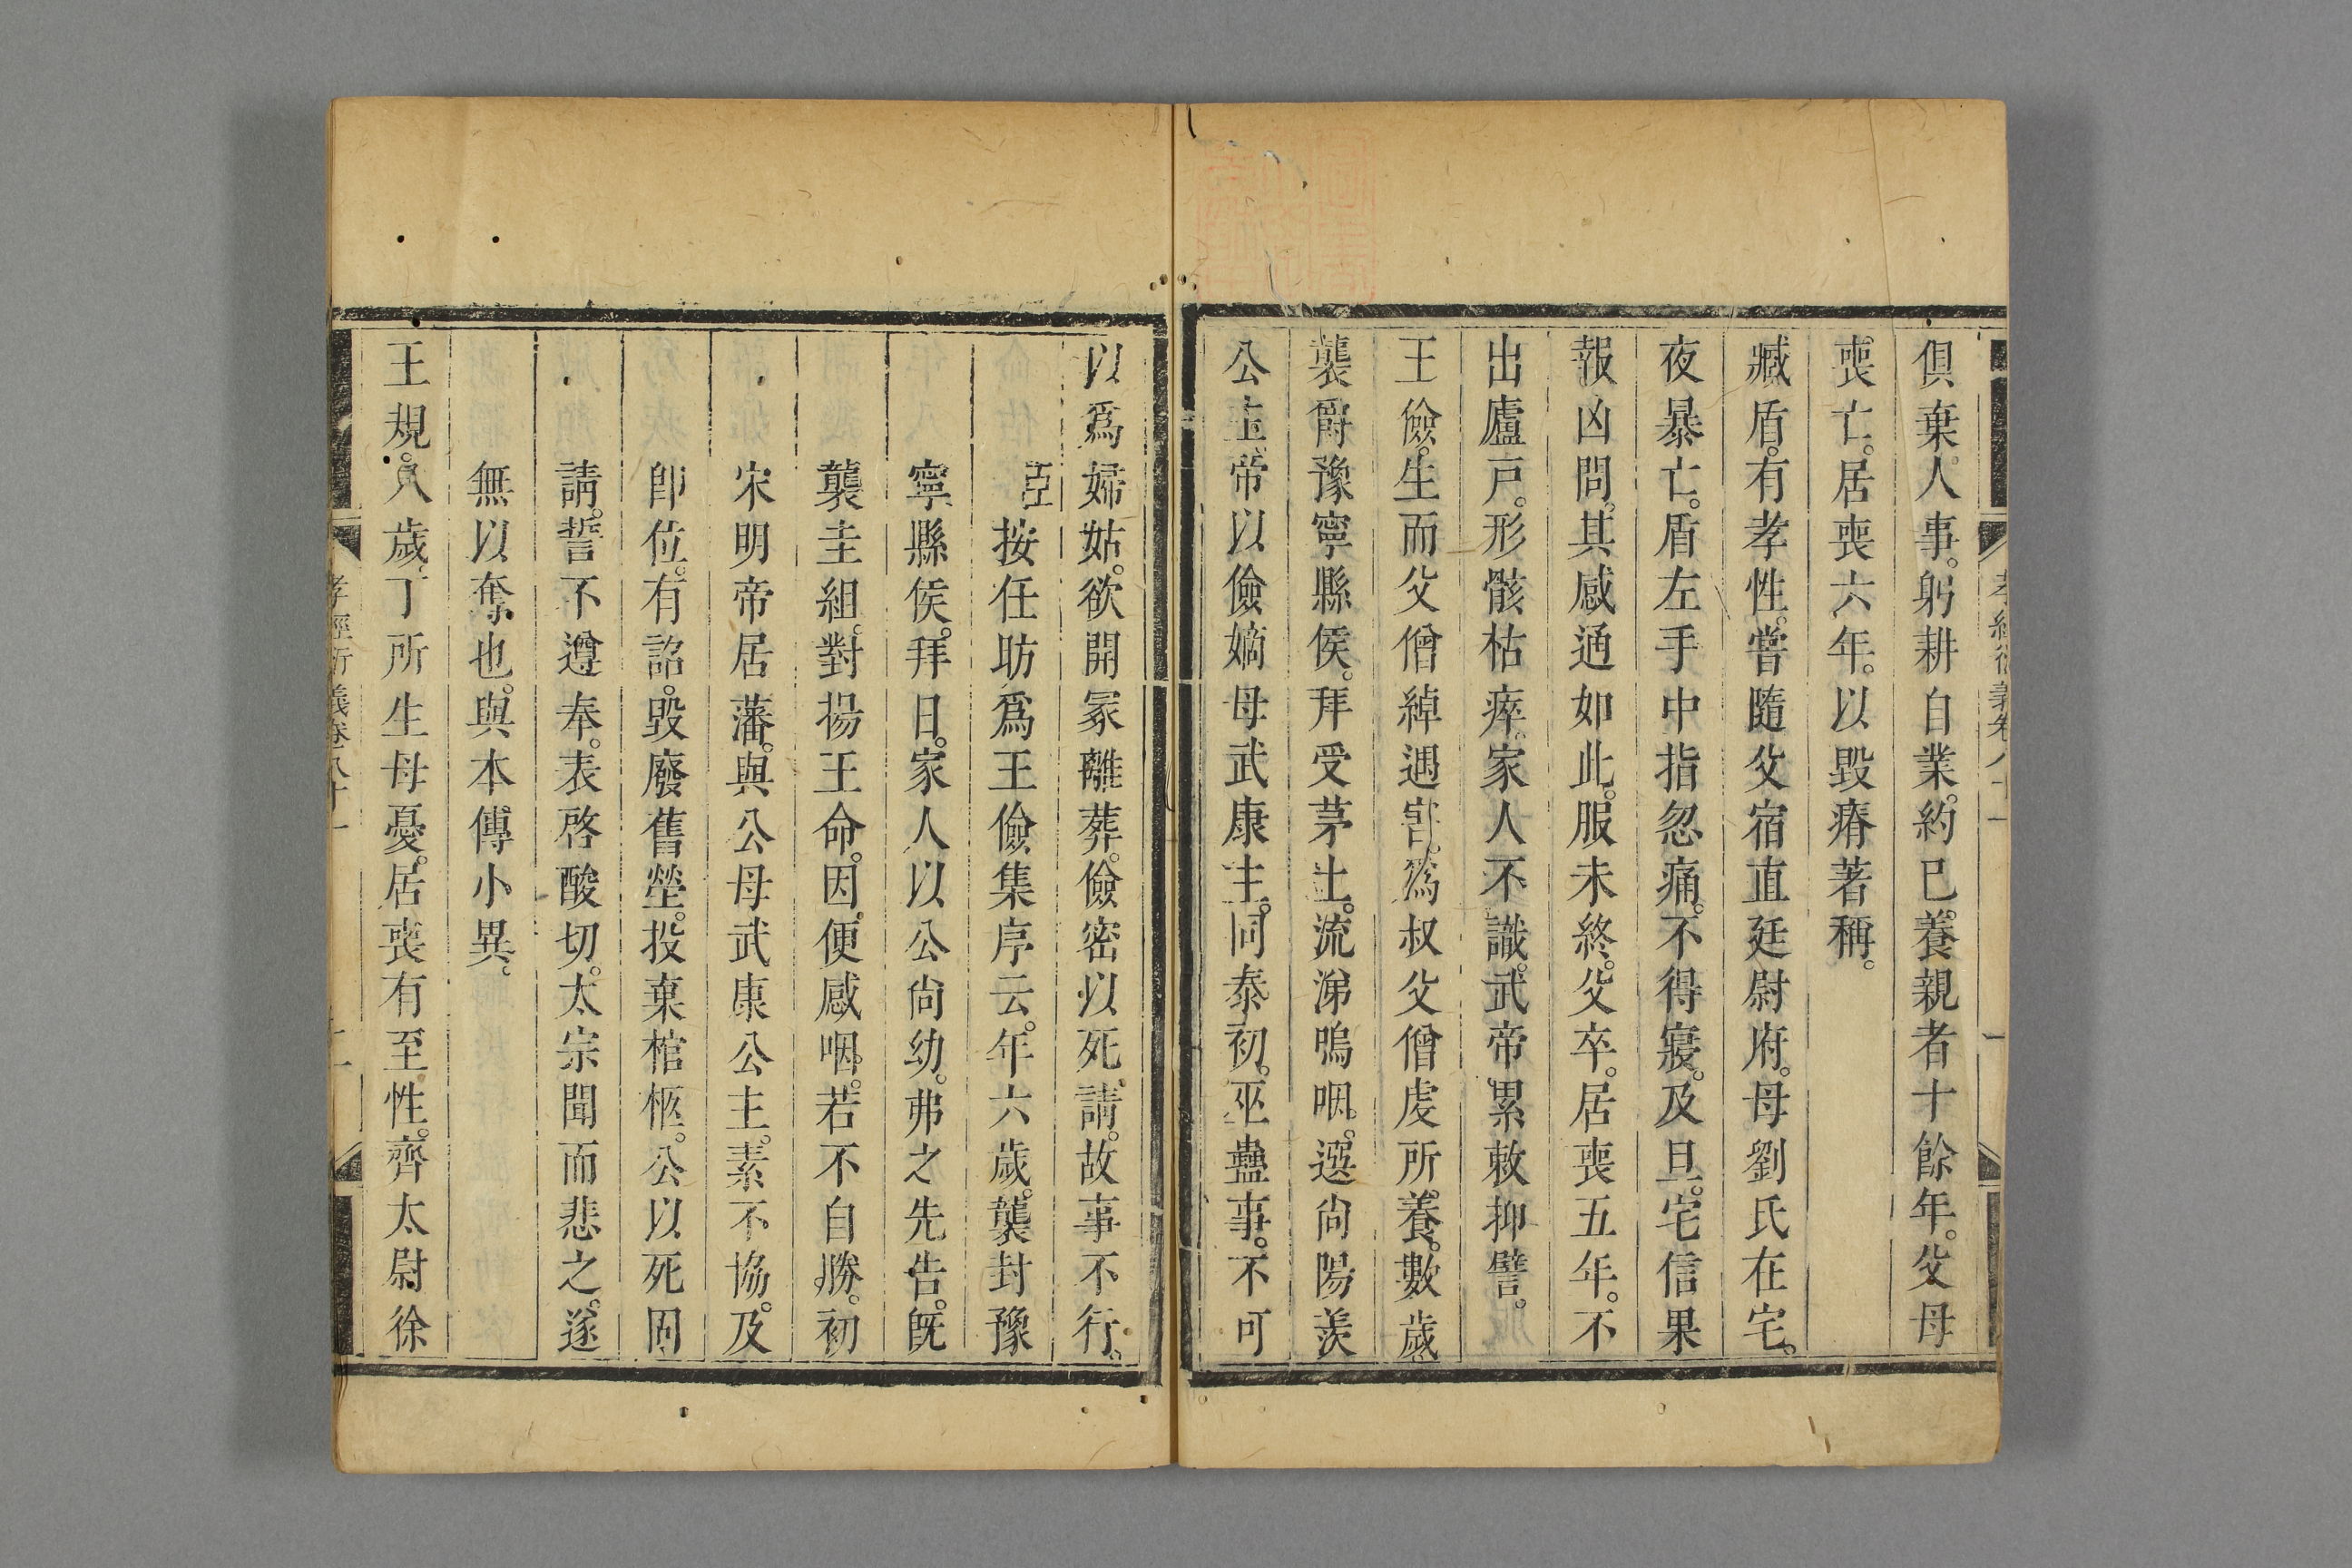 孝經衍義卷八十一
俱棄人事。躬耕自業。約已養親者十餘年。父母
喪亡。居喪六年。以毀瘠著稱。
臧盾。有孝性。嘗隨父宿直廷尉府。母劉氏在宅。
夜暴亡。盾左手中指忽痛。不得寢。及旦。宅信果
報凶問。其感通如此。服未終。父卒。居喪五年。不
出廬戸。形骸枯瘁。家人不識。武帝累敕抑譬。
王儉。生而父僧綽遇害。爲叔父僧虔所養。數歲
襲爵豫寧縣侯。拜受茅土。流涕嗚咽。選尚陽羨
公主。帝以儉嫡母武康主。同泰初。巫蠱事。不可
以爲婦姑。欲開冢離葬。儉密以死請。故事不行。
臣按任昉爲王儉集序云。年六歲。襲封豫
寧縣侯。拜日。家人以公尚幼。弗之先告。旣
襲圭組。對揚王命。因便感咽。若不自勝。初
宋明帝居藩。與公母武康公主。素不協。及
卽位。有詔。毀廢舊塋。投棄棺柩。公以死固
請。誓不遵奉。表啓酸切。太宗聞而悲之。遂
無以奪也。與本傳小異。
王規。八歲。丁所生母憂。居喪有至性。齊太尉徐
孝經衍義卷八十一
十一